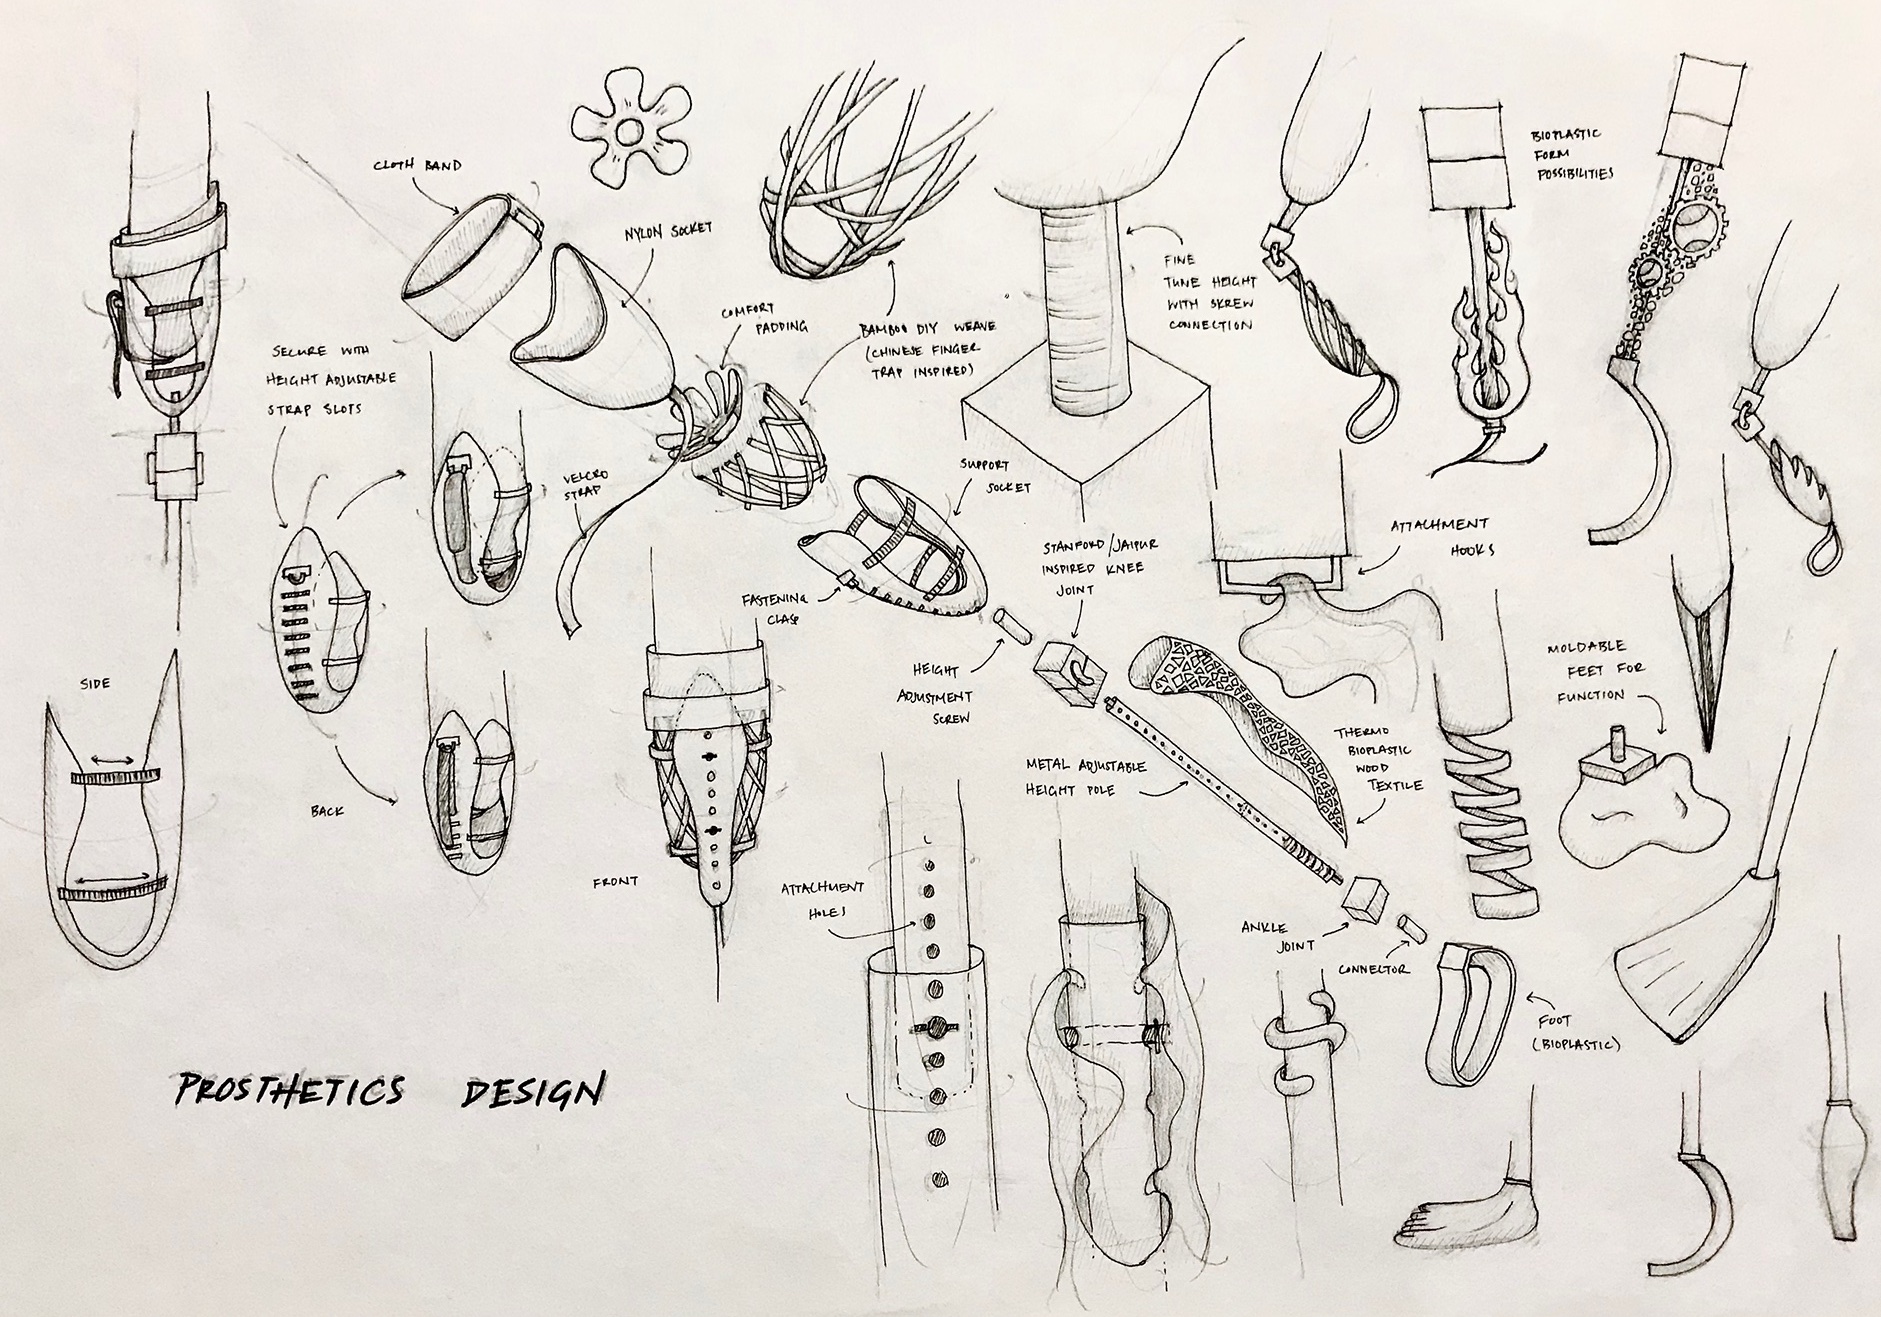 CLOTH BAND
NYLON SOCKET
COMFORT
PADDING
BAMBOO DIY WEAVE
(CHINESE FINGER
TRAP INSPIRED)
FINE
TUNE HEIGHT
WITH SKREW
CONNECTION
BIOPLASTIC
FORM
POSSIBILITIES
SECURE WITH
HEIGHT ADJUSTABLE
STRAP SLOTS
VELCRO
STRAP
SUPPORT
SOCKET
ATTACHMENT
HOOKS
STANFORD/JAIPUR
INSPIRED KNEE
JOINT
FASTENING
CLASP
HEIGHT
ADJUSTMENT
SCREW
MOLDABLE
FEET FOR
FUNCTION
SIDE
METAL ADJUSTABLE
HEIGHT POLE
THERMO
BIOPLASTIC
WOOD
TEXTILE
BACK
FRONT
ATTACHMENT
HOLES
ANKLE
JOINT
CONNECTOR
FOOT
(BIOPLASTIC)
PROSTHETICS DESIGN